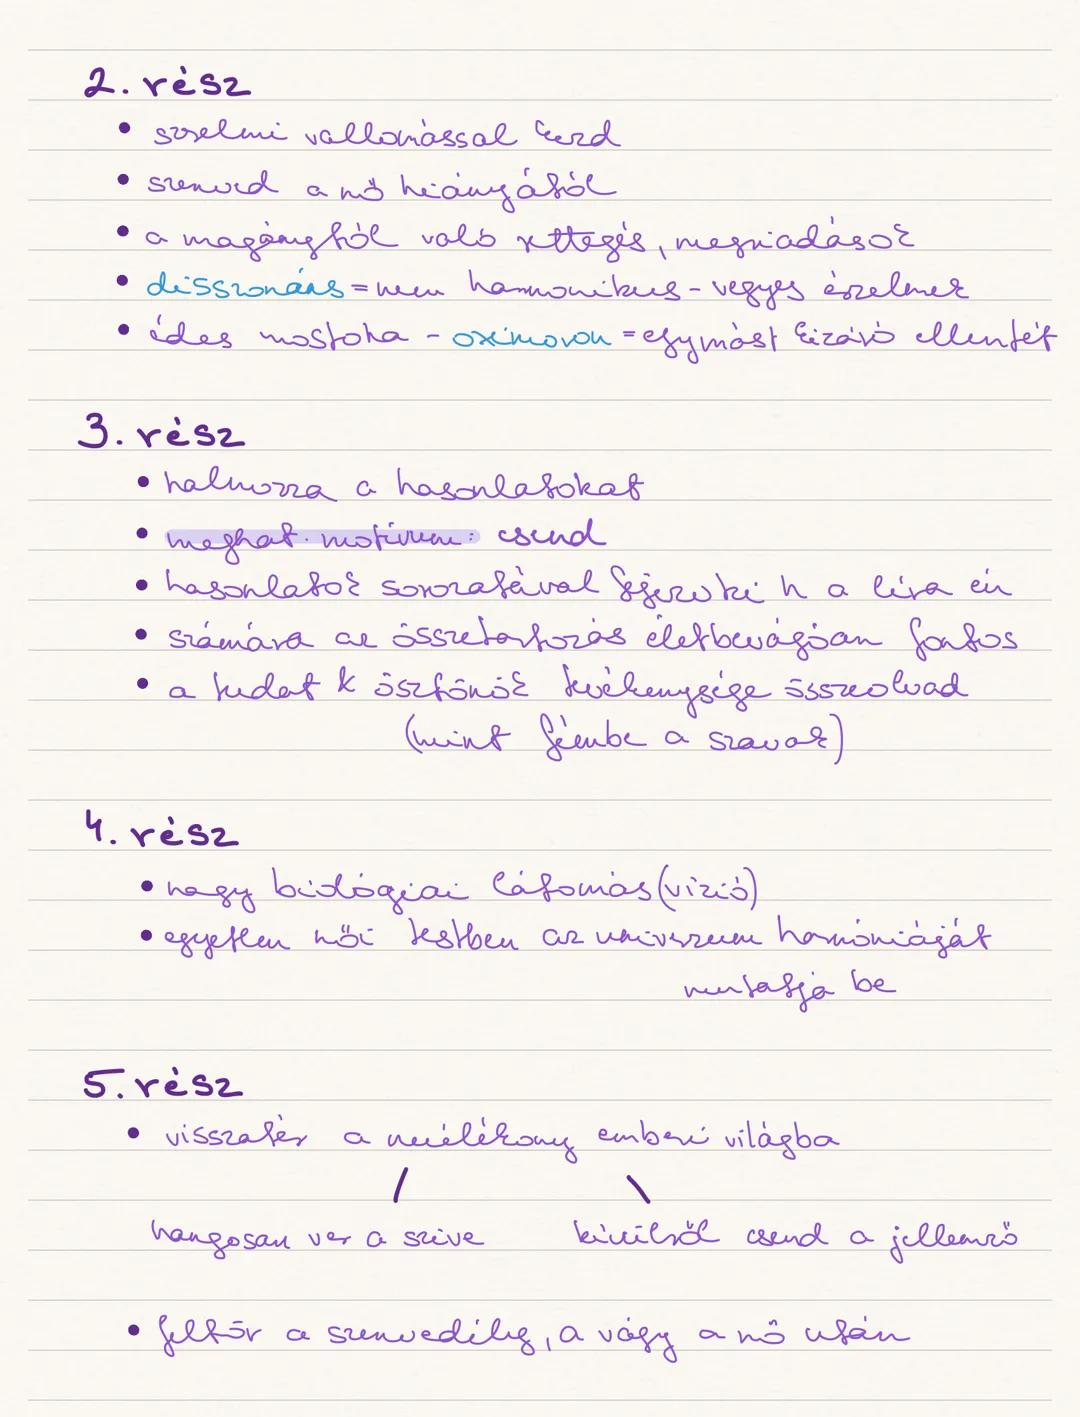 2. rész
• szerelmi vallomással kezd
• szenved a nő hiányától
• a magánytól való rettegés, megriadások
• disszonáns = nem harmonikus - vegyes érzelmek
• édes mostoha - oximoron = egymást kizáró ellentét
3. rész
• halmozza a hasonlatokat
• meghat. motívum: csend
• hasonlatok sorozatával fejezi ki h a lírai én
• számára az összetartozás életbevágóan fontos
• a tudat k ösztönök tevékenysége összeolvad
(mint fémbe a szavak)
4. rész
• nagy biológiai látomás (vízió)
• egyetlen női testben az univerzum harmóniáját
mutatja be
5. rész
• visszatér a mulékony emberi világba
hangosan ver a szíve kívülről csend a jellemző
• feltör a szenvedély, a vágy a nő után